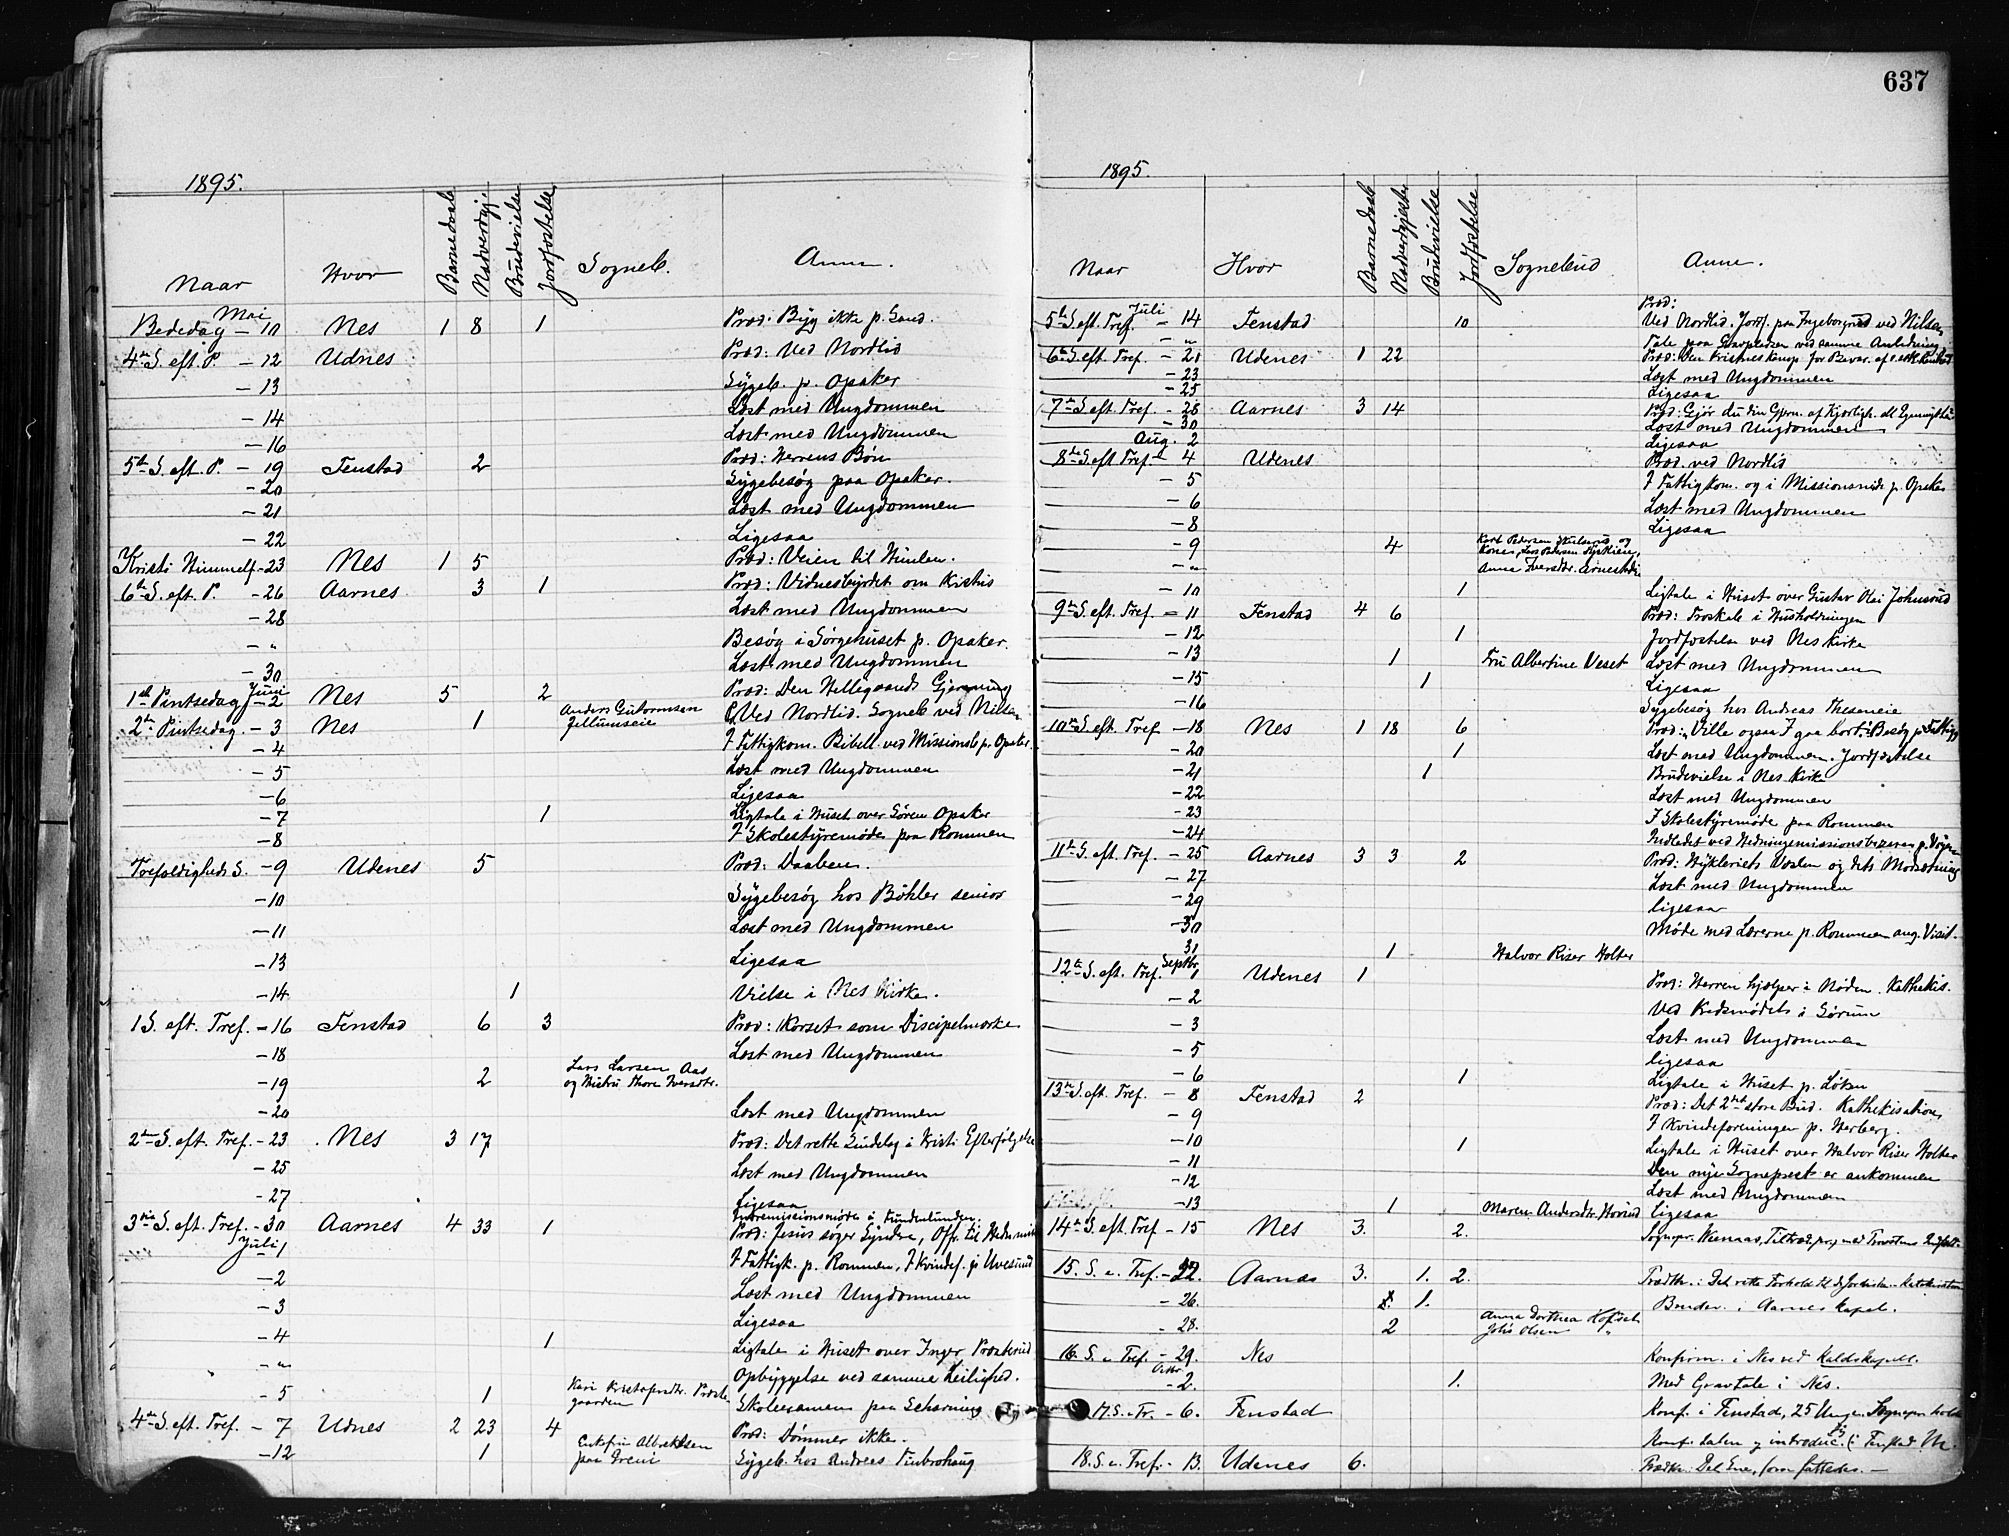 637
1895.
Naar Hvor Barnedaab Nadverdgj. Brudevielse Jordfæstelse Sogneb. Anm.
Mai
Bededag - 10 Nes 1 8 1 Præd: Byg ikke p. Sand.
4de S. eft. P. - 12 Udnes Præd: Ved Nordlid
- 13 Sygeb. p. Opaker
- 14 Læst med Ungdommen
- 16 Læst med Ungdommen
5te S. eft. P. - 19 Fenstad 2 Præd: Herrens Bøn
- 20 Sygebesøg paa Opaker.
- 21 Læst med Ungdommen
- 22 Ligesaa
Kristi Himmelf. - 23 Nes 1 5 Præd: Veien til Himlen.
6te S. eft. P. - 26 Aarnes 3 1 Præd: Vidnesbyrdet om Kristus
- 28 Læst med Ungdommen
- " Besøg i Sørgehuset p. Opaker.
- 30 Læst med Ungdommen
1ste Pintsedag Juni - 2 Nes 5 2 Præd: Den Helligaands Gjerning
2den Pintsedag - 3 Nes 1 Anders Guttormsen Ved Nordlid. Sogneb. ved Nilsen
- 4 I Fattigkom. Bibell. ved Missionsb. p. Opaker
- 5 Læst med Ungdommen
- 6 Ligesaa
- 7 1 Ligtale i Huset over Søren Opaker
- 8 I Skolestyremøde paa Rommen
Trefoldigheds S. - 9 Udenes 5 Præd: Daaben.
- 10 Sygebesøg hos Bøhler senior
- 11 Læst med Ungdommen
- 13 Ligesaa
- 14 1 Vielse i Nes Kirke.
1 S. eft. Tref. - 16 Fenstad 6 3 Præd: Korset som Discipelmærke
- 18 Læst med Ungdommen
- 19 2 Lars Larsen Aas
og Hustru Thore Iversdtr.
- 20 Læst med Ungdommen
2den S. eft. Tref. - 23 Nes 3 17 Præd: Det rette Sindelag i Kristi Efterfølgelse
- 25 Læst med Ungdommen
- 27 Ligesaa
3die S. eft. Tref. - 30 Aarnes 4 33 1 Præd: Jesus søger Syndere, Offr. til
Juli 1 I Fattigk. p. Rommen, I Kvindef. p. Uvesund
- 2 Læst med Ungdommen
- 3 Ligesaa
- 4 1 Ligtale i Huset over Inger Præsterud
- " Opbyggelse ved samme Leilighed.
- 5 1 Kari Kristofersdtr. Præste
gaarden Skoleexamen paa
4de S. eft. Tref. - 7 Udnes 2 23 4 Præd: Dømmer ikke.
- 12 1 Albrektsen Sygeb. hos Andreas
1895.
Naar Hvor Barnedaab Nadverdgjester Brudevielse Jordfæstelse Sognebud Anm.
Juli
5te S. eft. Tref. - 14 Fenstad 10 Præd:
Ved Nordlid. Jordf. paa Ingeborgrud ved Nilsen
- " Tale paa Gravpladsen ved samme Anledning
6te S. eft. Tref. - 21 Udenes 1 22 Præd: Den Kristnes Kamp for Bevar. af
- 23 Læst med Ungdommen
- 25 Ligesaa
7de S. eft. Tref. - 28 Aarnes 3 14 Præd: Gjør du din Gjern. af Kjærligh. ell. Egennytte
- 30 Læst med Ungdommen
Aug. 2 Ligesaa
8de S. eft. Tref. - 4 Udenes Præd. ved Nordlid
- 5 I Fattigkom. og i Missionsmøde p. Opaker
- 6 Læst med Ungdommen
- 8 Ligesaa
- 9 4 Pedersen og
Konen, Lars Pedersen
- " Anna Iversdtr.
- 10 1 Ligtale i Huset over Gustav Olai Johnsrud
9de S. eft. Tref. - 11 Fenstad 4 6 Præd: Troskab i Husholdningen
- 12 1 Jordfæstelse ved Nes Kirke
- 13 1 Fru Albertine Veset Læst med Ungdommen
- 15 1 Ligesaa
- 16 Sygebesøg hos Andreas Theseneie
10de S. eft. Tref. - 18 Nes 1 18 6 Præd: Ville ogsaa I gaa bort? Besøg p. Fattigg.
- 20 1 Læst med Ungdommen. Jordfæstelse
- 21 1 Brudevielse i Nes Kirke
- 22 Læst med Ungdommen
- 23 I Skolestyremøde paa Rommen
- 24 Indledet ved Hedningemissionsbazaren p.
11te S. eft. Tref. - 25 Aarnes 3 3 2 Præd: Hykleriets Væsen og dets Modsætning
- 27 Læst med Ungdommen
- 29 ligesaa
- 30 Møde med Lærerne p. Rommen ang. Visit.
31 1 Halvor Riser Holter
12te S. eft. Tref. Septbr. 1 Udenes 1 Præd: Herren hjælper i Nøden. Kathekis.
- 2 Ved Kredsmødet i Sørum
- 3 Læst med Ungdommen
- 5 ligesaa
- 6 1 Ligtale i Huset p. Løken
13de S. eft. Tref. - 8 Fenstad 2 Præd: Det 2det store Bud. Kathekisation
- 9 I Kvindeforeningen p. Herberg.
- 10 1 Ligtale i Huset over Halvor Riser Holter
- 11 Den nye Sogneprest er ankommen
- 12 Læst med Ungdommen
- 13 1 Maren Andersdtr. Horind ligesaa
14de S. eft. Tref - 15 Nes 3. 2. Sognepr. Tiltræd.pr. med Provstens Indsætt.
15. S. e. Tref. - 22. Aarnæs 3. 1. 2. Prædk.: Det rette Forhold til
- 26. 1. Brudev. i Aarnes kapel.
- 28. 2 Anna Dorthea
Johs Olsen "
16. S. e. Tref. - 29. Nes Konfirm. i Nes ved
Octbr.
- 2. 1. Med Gravtale i Nes.
17. S. e. Tr. - 6. Fenstad Konf. i Fenstad, 25 Unge. Sognepr. holdt
Konf. talen og introduc. i Fenstad
18. S. e. Tref. - 13. Udenes 6. Prædk: Det Ene, som fattedes. -